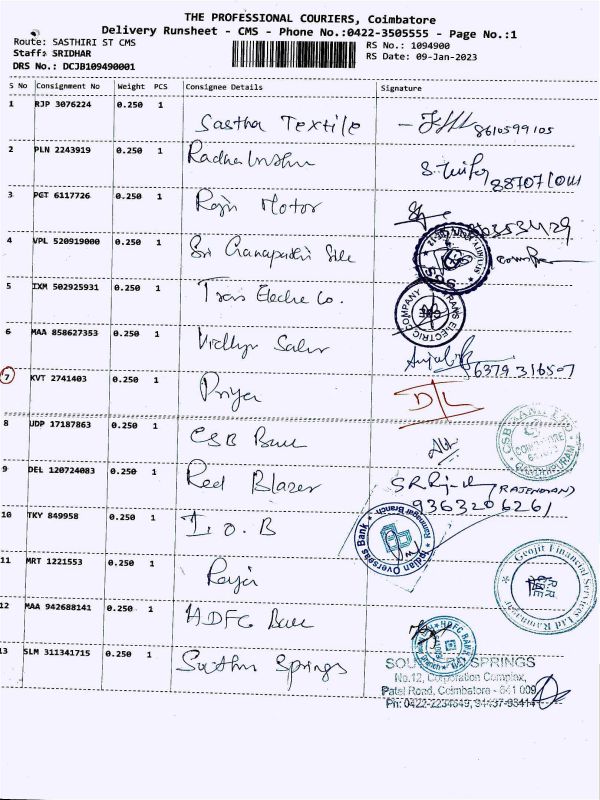 THE PROFESSIONAL COURIERS, Coimbatore
Delivery Runsheet - CMS - Phone No.:0422-3505555 - Page No.:1
Route: SASTHIRI ST CMS RS No.: 1094900
Staff: SRIDHAR RS Date: 09-Jan-2023
DRS No.: DCJB109490001
S No Consignment No Weight PCS Consignee Details Signature
1 RJP 3076224 0.250 1 Sastha Textile 8610599105
2 PLN 2243919 0.250 1
3 PGT 6117726 0.250 1 Raju Motor
4 VPL 520919000 0.250 1 Sri Ganapathi
5 IXM 502925931 0.250 1 Trans Electric Co. TRANS ELECTRIC COMPANY
6 MAA 858627353 0.250 1 6379316507
7 KVT 2741403 0.250 1 Priya D/L
8 UDP 17187863 0.250 1 CSB Bank
9 DEL 120724083 0.250 1 Red Blazer (RAJENDRAN)
9363206261
10 TKY 849958 0.250 1 I.O.B Indian Overseas Bank Ramnagar Branch
11 MRT 1221553 0.250 1 Raja Geojit Financial Services Ltd
12 MAA 942688141 0.250 1 HDFC Bank HDFC BANK
13 SLM 311341715 0.250 1 Springs SPRINGS
No.12, Corporation Complex,
Patel Road, Coimbatore - 641 009